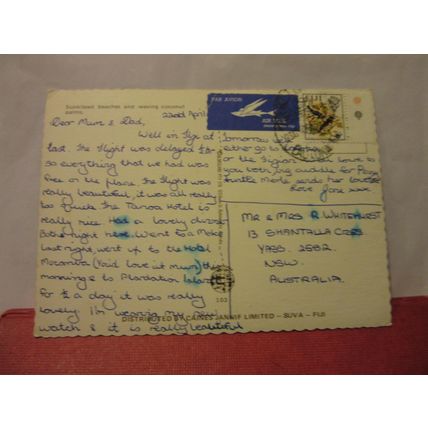 Sunkissed beaches and waving coconut
palms.
22nd April
Dear Mum & Dad,
Well in Fiji at
last. The flight was delayed
so everything that we had was
free on the place. The flight was
really beautiful, it was all really
The Tanoa Hotel is
really nice. Had a lovely
night here. Went to a
last night, went up to the Hotel
(You'd love it mum) this
morning & to Plantation Island
for ½ a day it was really
lovely. I'm wearing my
watch & it is really beautiful
PAR AVION
AIR MAIL
FIJI
Tomorrow we
either go to
or the Fijian with love to
you both, big cuddle for
Love Jane xxxx
MR & MRS R WHITEHURST
13 SHANTALLA CRES
YASS. 2582
NSW
AUSTRALIA.
103
DISTRIBUTED BY CAINES JANNIF LIMITED – SUVA – FIJI